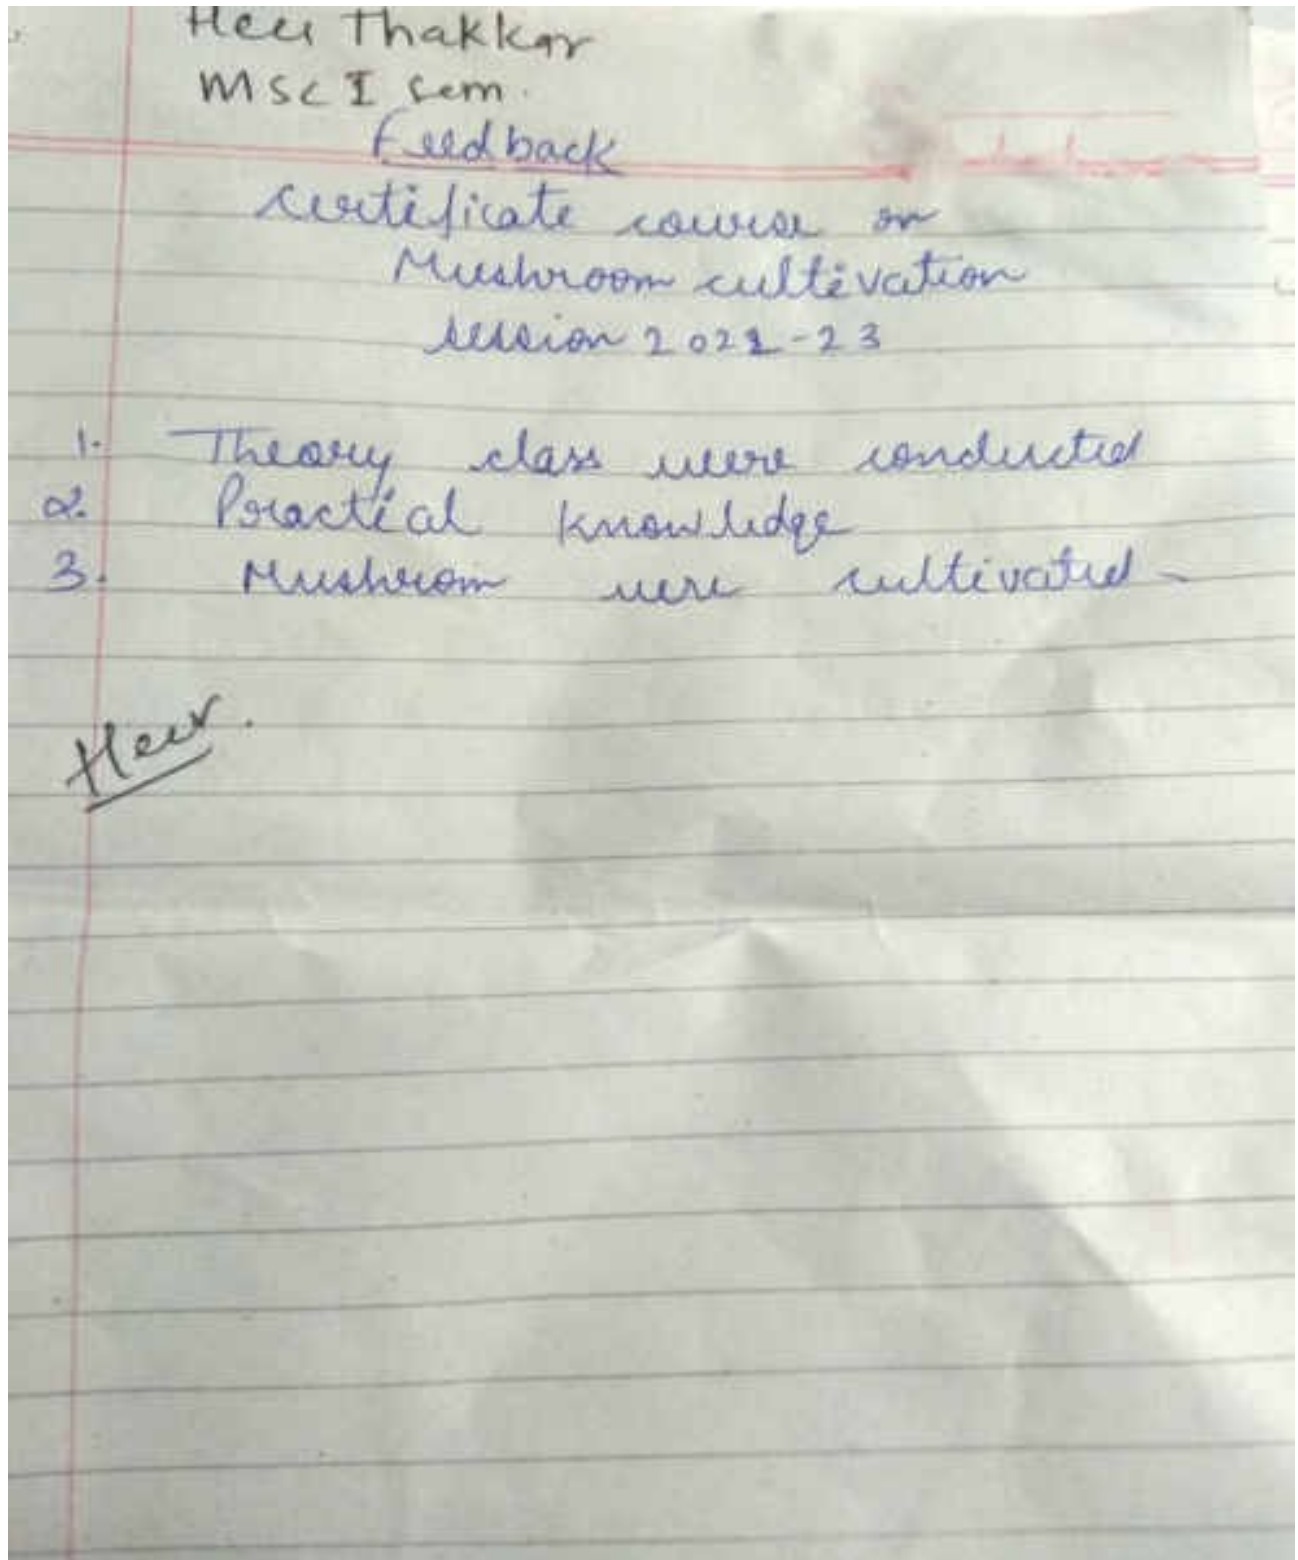 Heer Thakkar
MSc I sem.
Feedback
certificate course on
Mushroom cultivation
session 2022-23
1. Theory class were conducted
2. Practical knowledge
3. Mushrom were cultivated
Heer.